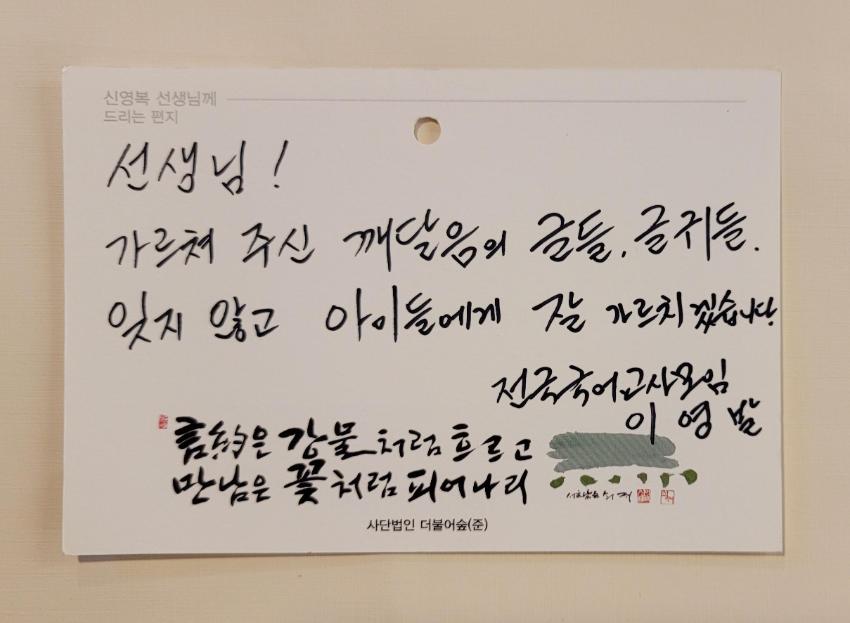 신영복 선생님께
드리는 편지
선생님!
가르쳐 주신 깨달음의 글들, 글귀들.
잊지 않고 아이들에게 잘 가르치겠습니다.
전국국어교사모임
이 영 발
言約은 강물처럼 흐르고
만남은 꽃처럼 피어나리
사단법인 더불어숲(준)